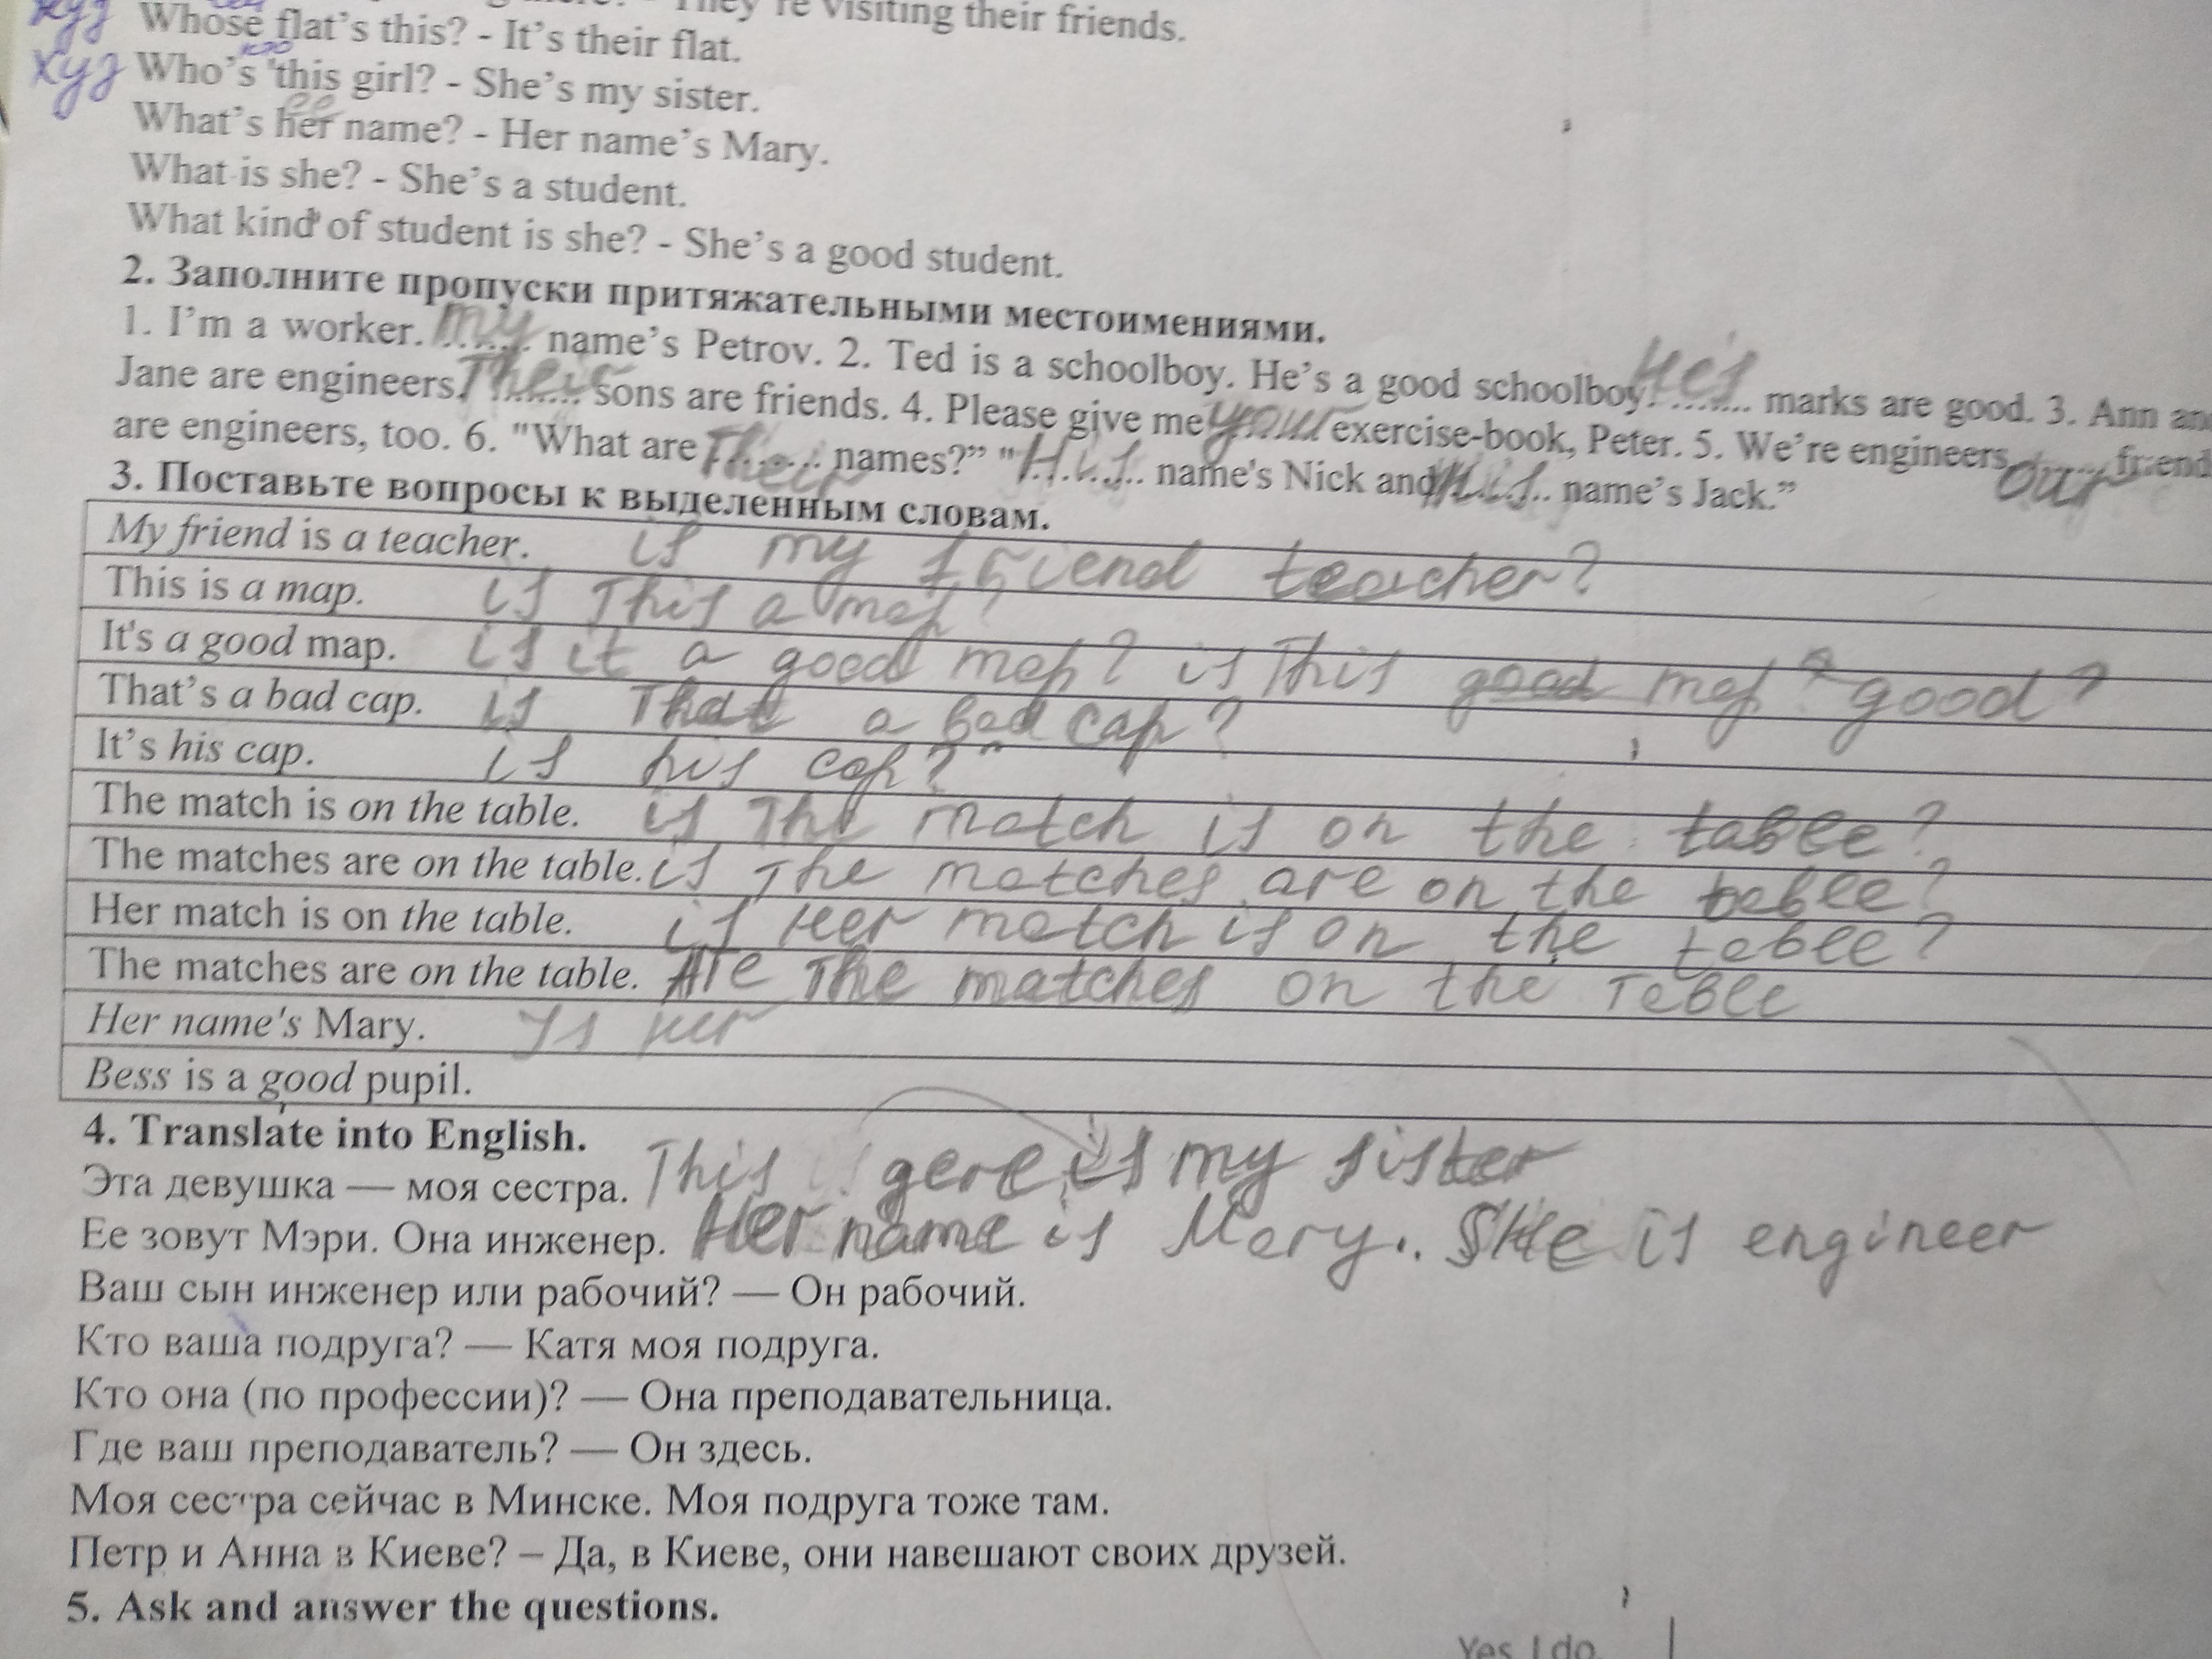 They're visiting their friends.
худ Whose flat's this? - It's their flat.
худ Who's this girl? - She's my sister.
ее
What's her name? - Her name's Mary.
What is she? - She's a student.
What kind of student is she? - She's a good student.
2. Заполните пропуски притяжательными местоимениями.
1. I'm a worker. My name's Petrov. 2. Ted is a schoolboy. He's a good schoolboy. He's marks are good. 3. Ann an
Jane are engineers. Their sons are friends. 4. Please give me your exercise-book, Peter. 5. We're engineers, our friend
are engineers, too. 6. "What are Their names?" "His name's Nick and His name's Jack."
3. Поставьте вопросы к выделенным словам.
My friend is a teacher. is my friend teacher?
This is a map. is This a map?
It's a good map. is it a good map? is This good map good?
That's a bad cap. is That a bad cap?
It's his cap. is his cap?
The match is on the table. is The match is on the table?
The matches are on the table. is The matches are on the table?
Her match is on the table. is Her match is on the table?
The matches are on the table. Are The matches on the Table
Her name's Mary. Is Her
Bess is a good pupil.
4. Translate into English.
Эта девушка — моя сестра. This gere is my sister
Ее зовут Мэри. Она инженер. Her name is Mary. She is engineer
Ваш сын инженер или рабочий? — Он рабочий.
Кто ваша подруга? — Катя моя подруга.
Кто она (по профессии)? — Она преподавательница.
Где ваш преподаватель? — Он здесь.
Моя сестра сейчас в Минске. Моя подруга тоже там.
Петр и Анна в Киеве? – Да, в Киеве, они навешают своих друзей.
5. Ask and answer the questions.
Yes, I do.